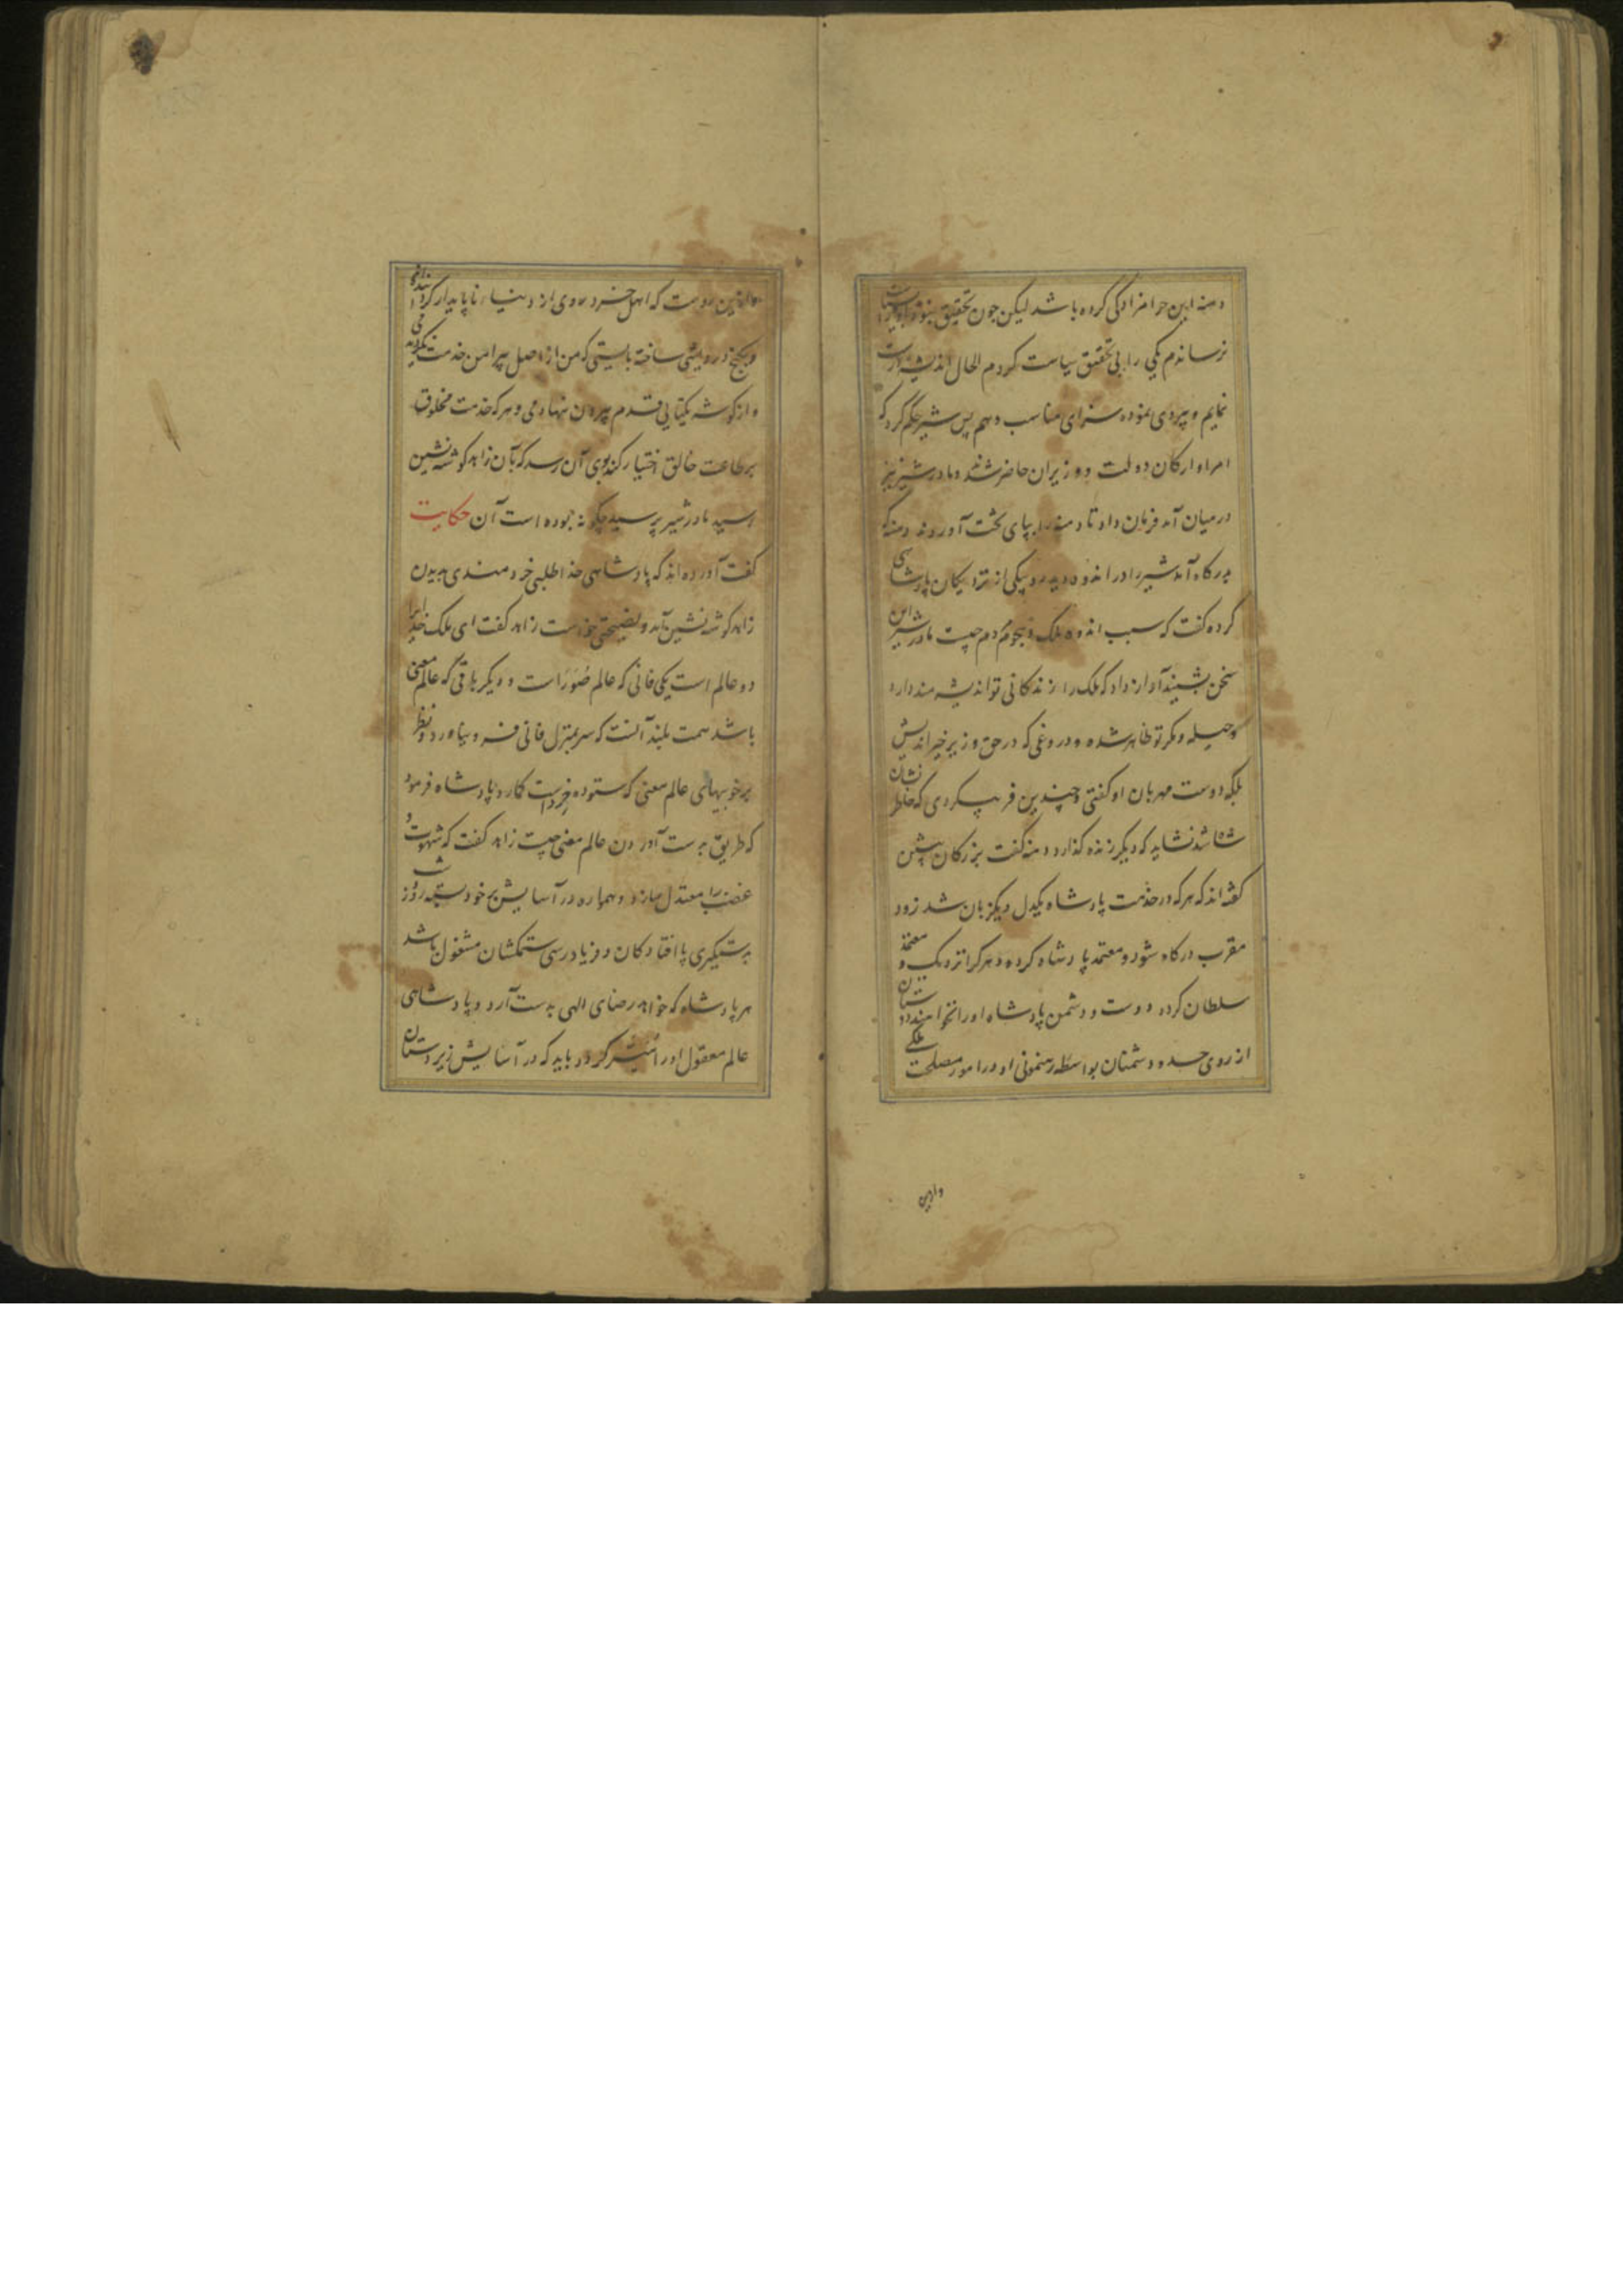 دمنه این حرامزادگی کرده باشد لیکن چون تحقیق
نرساندم یکی را بی تحقیق سیاست کردم الحال اندیشه
نمایم و پیروی نموده سزای مناسب دهم پس شیر حکم کرد که
امرا و ارکان دولت و وزیران حاضر شدند و مادر شیر نیز
درمیان آمد فرمان داد تا دمنه را بپای تخت آوردند دمنه که
بدرگاه آمد شیر را در اندوه دید رو بیکی از نزدیکان پادشاهی
کرده گفت که سبب اندوه ملک و هجوم مردم چیست مادر شیر این
سخن بشنید آواز داد که ملک را زندکانی تو اندیشه مند دارد
و حیله و مکر تو ظاهر شده و دروغی که در حق وزیر خیر اندیش
بلکه دوست مهربان او کفتی و چندین فریب کردی که خاطر نشان
شاه شد نشاید که دیگر زنده کذارد دمنه گفت بزرکان پیشین
کفته اند که هر که در خدمت پادشاه یکدل و یکزبان شد زود
مقرب درکاه شود و معتمد پادشاه کردد و هر کرا نزدیک و معتمد
سلطان کردد دوست و دشمن پادشاه او را نخواهند دوستان
از روی حسد و دشمنان بواسطه رهنمونی او در امور مصلحت ملکی
و ازین
و ازین روست که اهل خرد روی از دنیاء ناپایدار
و بکنج درویشی ساخته بایستی که من از اصل پیرامن خدمت نکردیدمی
و از کوشه یکتایی قدم بیرون ننهادمی و هر که خدمت مخلوق
بر طاعت خالق اختیار کند بوی آن رسد که بآن زاهد کوشه نشین
رسید مادر شیر پرسید چکونه بوده است آن حکایت
کفت آورده اند که پادشاهی خدا طلبی خردمندی بدیدن
زاهد کوشه نشین آمد و نصیحتی خواست زاهد کفت ای ملک خدایرا
دو عالم است یکی فانی که عالم صورت است و دیگر باقی که عالم معنی
باشد همت بلند آنست که سر بمنزل فانی فرو نیاورد و نظر
بر خوبیهای عالم معنی که ستوده خرد است کمارد پادشاه فرمود
که طریق بدست آوردن عالم معنی چیست زاهد کفت که شهوت و
غضب را معتدل سازد و همواره در آسایش بر خود بسته شب و روز
بدستگیری پا افتادکان و فریاد رسی ستمکشان مشغول باشد
هر پادشاه که خواهد رضای الهی بدست آرد و پادشاهی
عالم معقول او را میسر کردد باید که در آسایش زیردستان